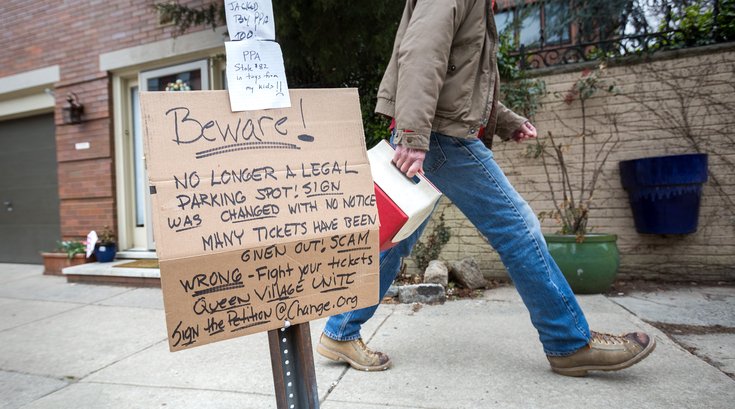 JACKED
BY PPA
TOO!
PPA
Stole $82
in toys from
my kids!!
Beware!
NO LONGER A LEGAL
PARKING SPOT! SIGN
WAS CHANGED WITH NO NOTICE
MANY TICKETS HAVE BEEN
GIVEN OUT! SCAM
WRONG - Fight your tickets
QUEEN VILLAGE UNITE
Sign the Petition @Change.Org